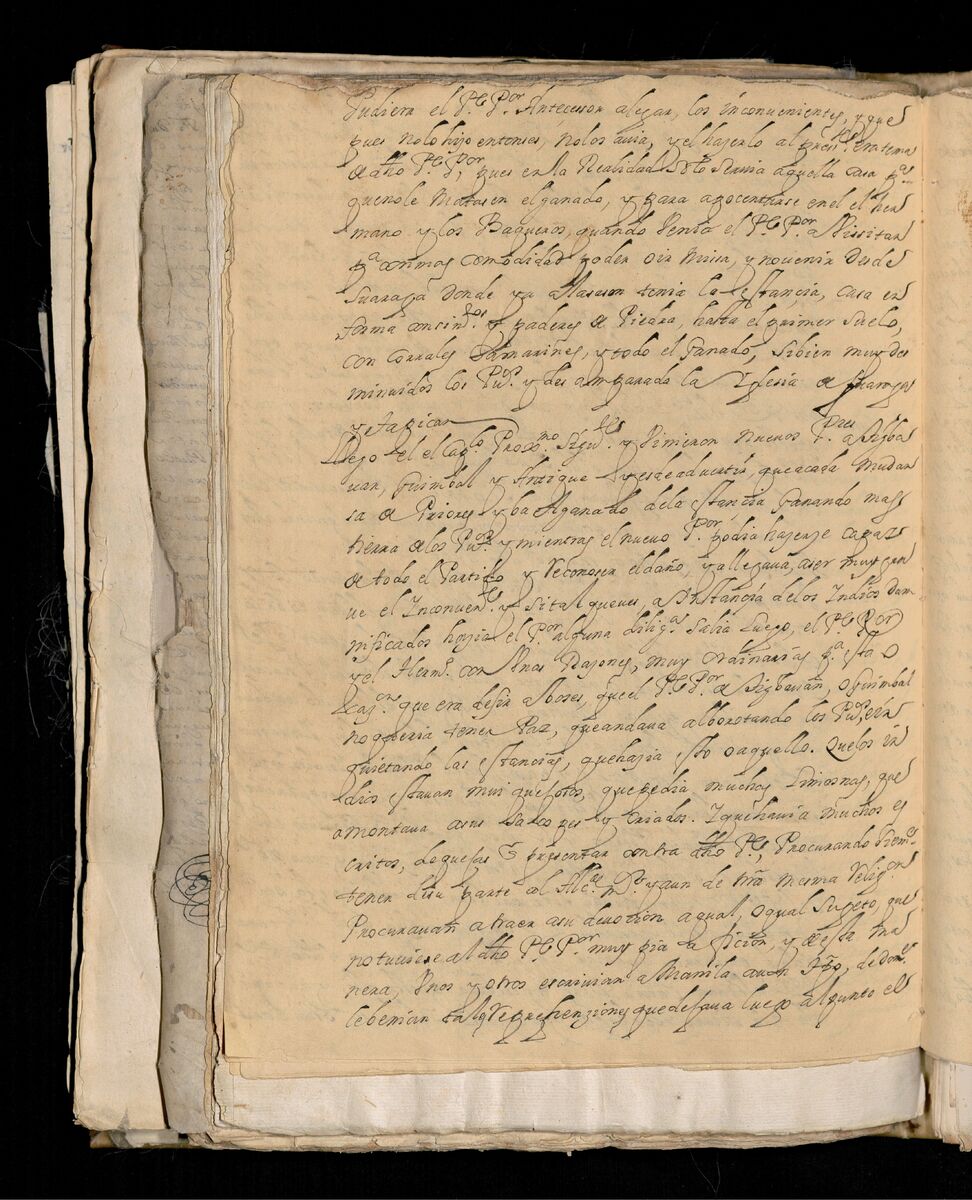 Pudiera el Pe Por Antecesor alegar, los inconvenientes, y que
pues nolo hijo entonses, nolos auia, y el hajerlo al preste era tema
de dho Pe Por, pues en la Realidad solo seruia aquella casa pa
quenole Matasen el ganado, y para aposentarse en el el her
mano y los Baqueros, quando Venia el Pe Por a Vissitar
pa con mas comodidad poder oir missa, y no venir desde
Suaraga donde ya a la sason tenia la estancia, casa en
forma consimtos y paderes de Piedra, hasta el primer suelo,
con corrales Camarines, y todo el Ganado, si bien muy des
minuidos los Pueos y desamparada la Yglesia de Suaraga
y Japicar
Llego el Caplo Proxmo Sigute y Vinieron nuevos Pres a Sigba
uan, Guimbal y Antique y es de aduertir, que acada mudan
sa de Priores yba el ganado dela estancia ganando mas
tierra delos Pueos y mientras el nuevo Por podia hajerse capaz
de todo el Partido y Reconoser el daño, ya llegaua, aser muy gra
ue el Inconuente y si tal ques ves, a Instancia delos Indios dam
nificados hajia el Por alguna diliga salia luego, el Pe Por
y el Hermo con Vnas Rajones, muy ordinarias pa esta o
casn que era desir a boses, que el Pe Por de Sigbauan, o guimbal
no queria tener Paz, que andaua alborotando los Pueos, in
quietando las estancias, que hajia esto o aquello. Quelos in
dios estauan mui quejosos, que pedia muchas Limosnas, que
amontaua asus Bataos pes y Criados. Y que hauia muchos es
critos, de quejas que presentar contra dho Pe, Procurando siemre
tener desu parte al Alce mr y aun de nra mesma Relign
Procurauan atraer asu deuotion a qual, o qual sugeto, que
notuuiese al dho Pe Por muy pia aficion, y de esta ma
nera, Vnos y otros escriuian a Manila a un tpo, de donde
le benian tales Reprehenziones que dejaua luego al punto el